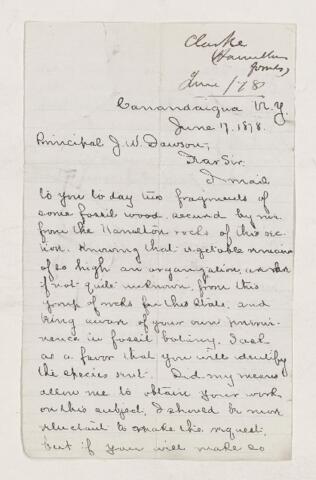 Clarke
(Hamilton
fossils)
June /78
Canandaigua N.Y.
June 17. 1878.
Principal J. W. Dawson,
Dear Sir.
I mail
to you to day two fragments of
some fossil wood, secured by me
from the Hamilton rocks of this sec-
tion. Knowing that vegetable remains
of so high an organization, are rare
if not quite unknown, from this
group of rocks in this State, and
being aware of your own promi-
nence in fossil botany, I ask
as a favor that you will identify
the species sent. Did my means
allow me to obtain your work
on this subject, I should be most
reluctant to make the request:
but if you will make so